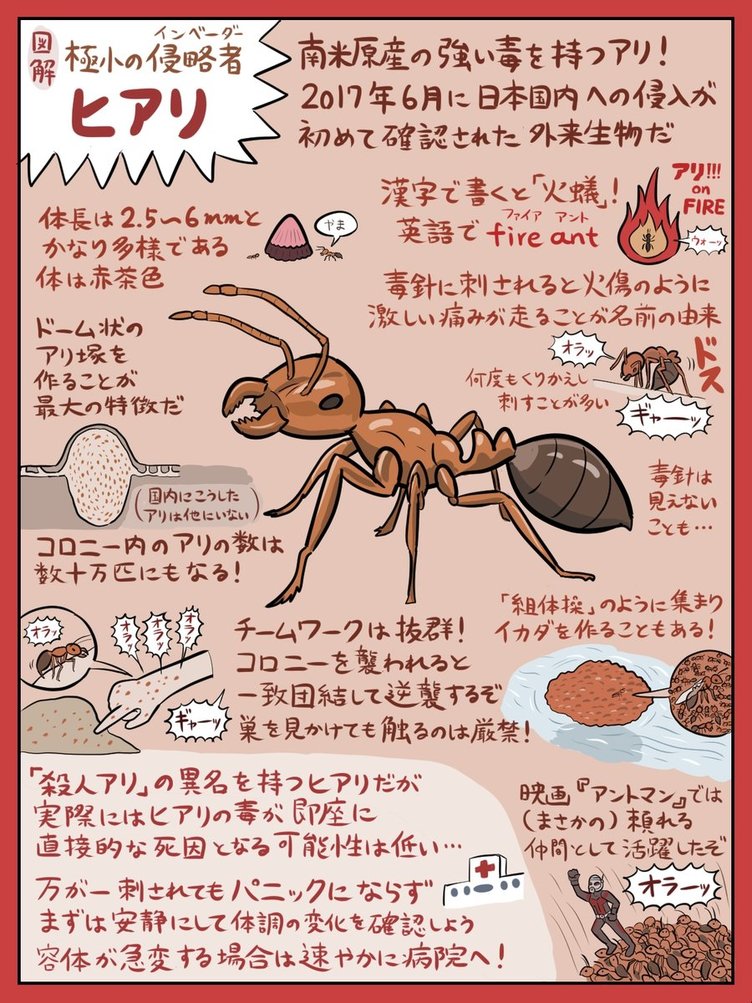 図解
インベーダー
極小の侵略者
ヒアリ
南米原産の強い毒を持つアリ!
2017年6月に日本国内への侵入が
初めて確認された外来生物だ
体長は2.5〜6mmと
かなり多様である
体は赤茶色
やま
漢字で書くと「火蟻」!
ファイア アント
英語で fire ant
アリ!!!
on
FIRE
ウォーッ
毒針に刺されると火傷のように
激しい痛みが走ることが名前の由来
オラッ
ドス
何度もくりかえし
刺すことが多い
ギャーーッ
毒針は
見えない
ことも…
ドーム状の
アリ塚を
作ることが
最大の特徴だ
(国内にこうした
アリは他にいない)
コロニー内のアリの数は
数十万匹にもなる!
オラッ
オラッ
オラッ
オラッ
ギャーッ
チームワークは抜群!
コロニーを襲われると
一致団結して逆襲するぞ
巣を見かけても触るのは厳禁!
「組体操」のように集まり
イカダを作ることもある!
「殺人アリ」の異名を持つヒアリだが
実際にはヒアリの毒が即座に
直接的な死因となる可能性は低い…
万が一刺されてもパニックにならず
まずは安静にして体調の変化を確認しよう
容体が急変する場合は速やかに病院へ!
映画『アントマン』では
(まさかの)頼れる
仲間として活躍したぞ
オラーッ